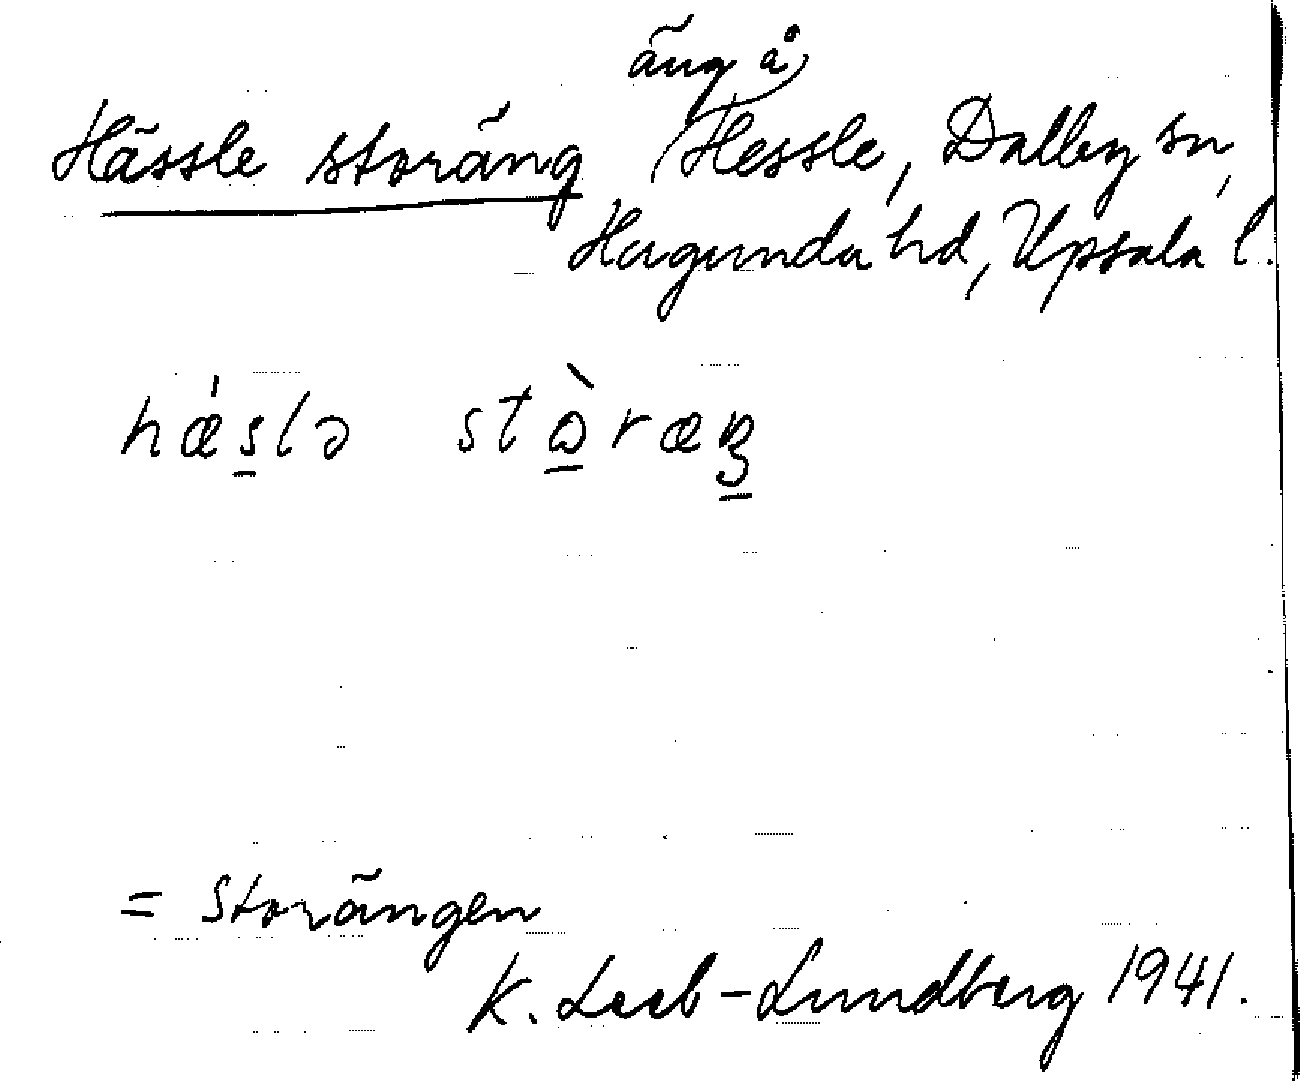 äng å
Hässle storäng Hessle, Dalby sn,
Hagunda hd, Upsala l.
hǽs̲lə stò̲ræŋ̲
= Storängen
K. Leeb-Lundberg 1941.